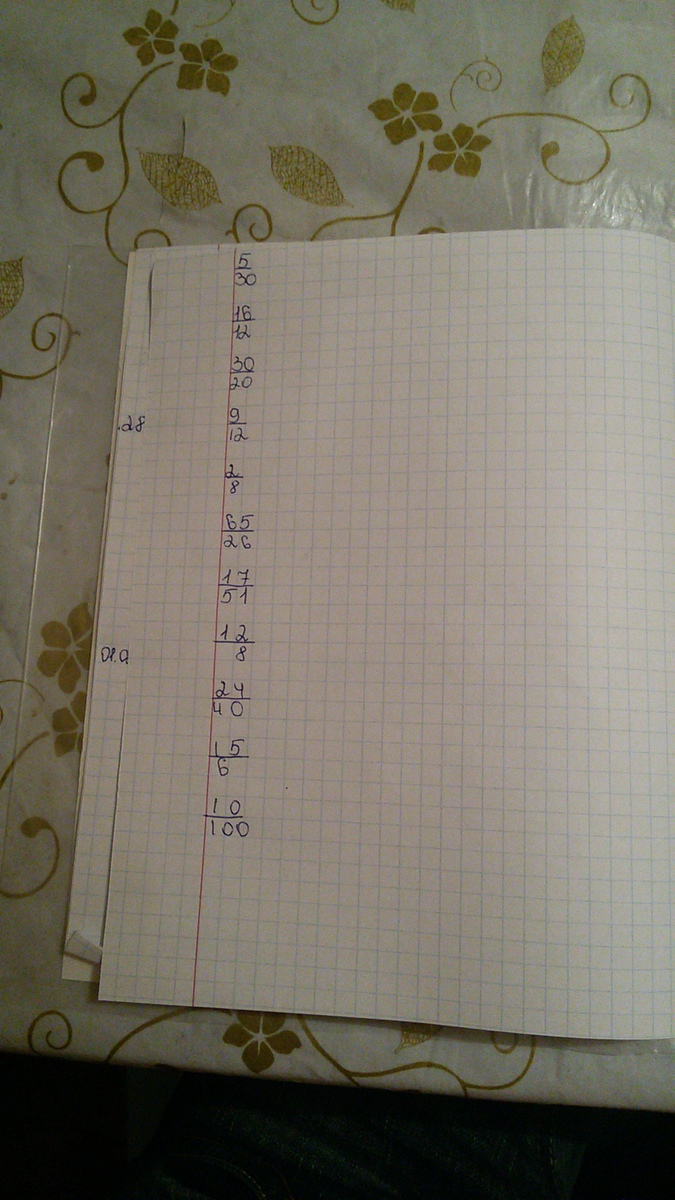 5/30
16/12
30/20
9/12
28
2/8
65/26
17/51
12/8
24/40
15/6
10/100